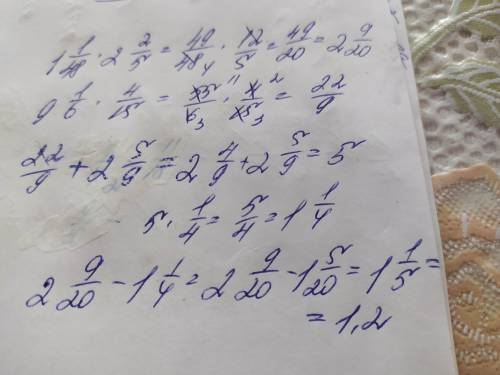 1 1/48 · 2 2/5 = 49/48 4 · 12/5 = 49/20 = 2 9/20
9 1/6 · 4/15 = 55 11/6 3 · 4 2/15 3 = 22/9
22/9 + 2 5/9 = 2 4/9 + 2 5/9 = 5
5 · 1/4 = 5/4 = 1 1/4
2 9/20 - 1 1/4 = 2 9/20 - 1 5/20 = 1 1/5 =
= 1,2